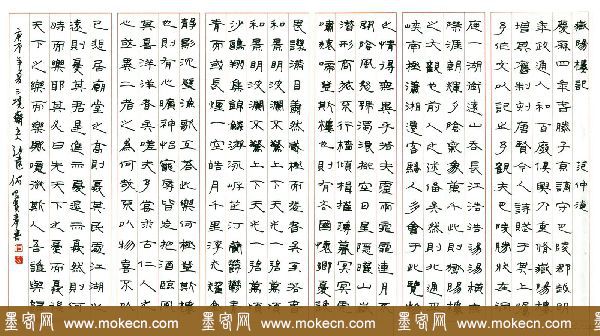 嶽陽樓記 范仲淹
慶歷四年春滕子京謫守巴陵郡越明
年政通人和百廢俱興乃重修嶽陽樓
增其舊制刻唐賢今人詩賦于其上
予作文以記之予觀夫巴陵勝狀在洞
庭一湖銜遠山吞長江浩浩湯湯橫
際涯朝暉夕陰氣象萬千此則岳陽
之大觀也前人之述備矣然則北通巫
南極瀟湘遷客騷人多會于此覽物
之情得無異乎若夫霪雨霏霏連月
開陰風怒號濁浪排空日星隱曜山岳
潛形商旅不行檣傾楫摧薄暮冥冥
嘯猿啼登斯樓也則有去國懷鄉憂
畏譏滿目蕭然感極而悲者矣至若
和景明波瀾不驚上下天光一碧萬
和景明波瀾不驚上下天光一碧萬頃
沙鷗翔集錦鱗游泳岸芷汀蘭鬱鬱
青而或長煙一空皓月千里浮光
靜影沉璧漁歌互答此樂何極登斯樓
也則有心曠神怡寵辱皆忘把酒臨
其喜洋洋者矣嗟夫予嘗求古仁人
心或異二者之為何哉不以物喜不
己悲居廟堂之高則憂其民處江湖
遠則憂其君是進亦憂退亦憂然則何
時而樂耶其必曰先天下之憂而憂
天下之樂而樂歟噫微斯人吾誰與歸
墨客网 www.mokecn.com 墨客网 www.mokecn.com 墨客网 www.mokecn.com